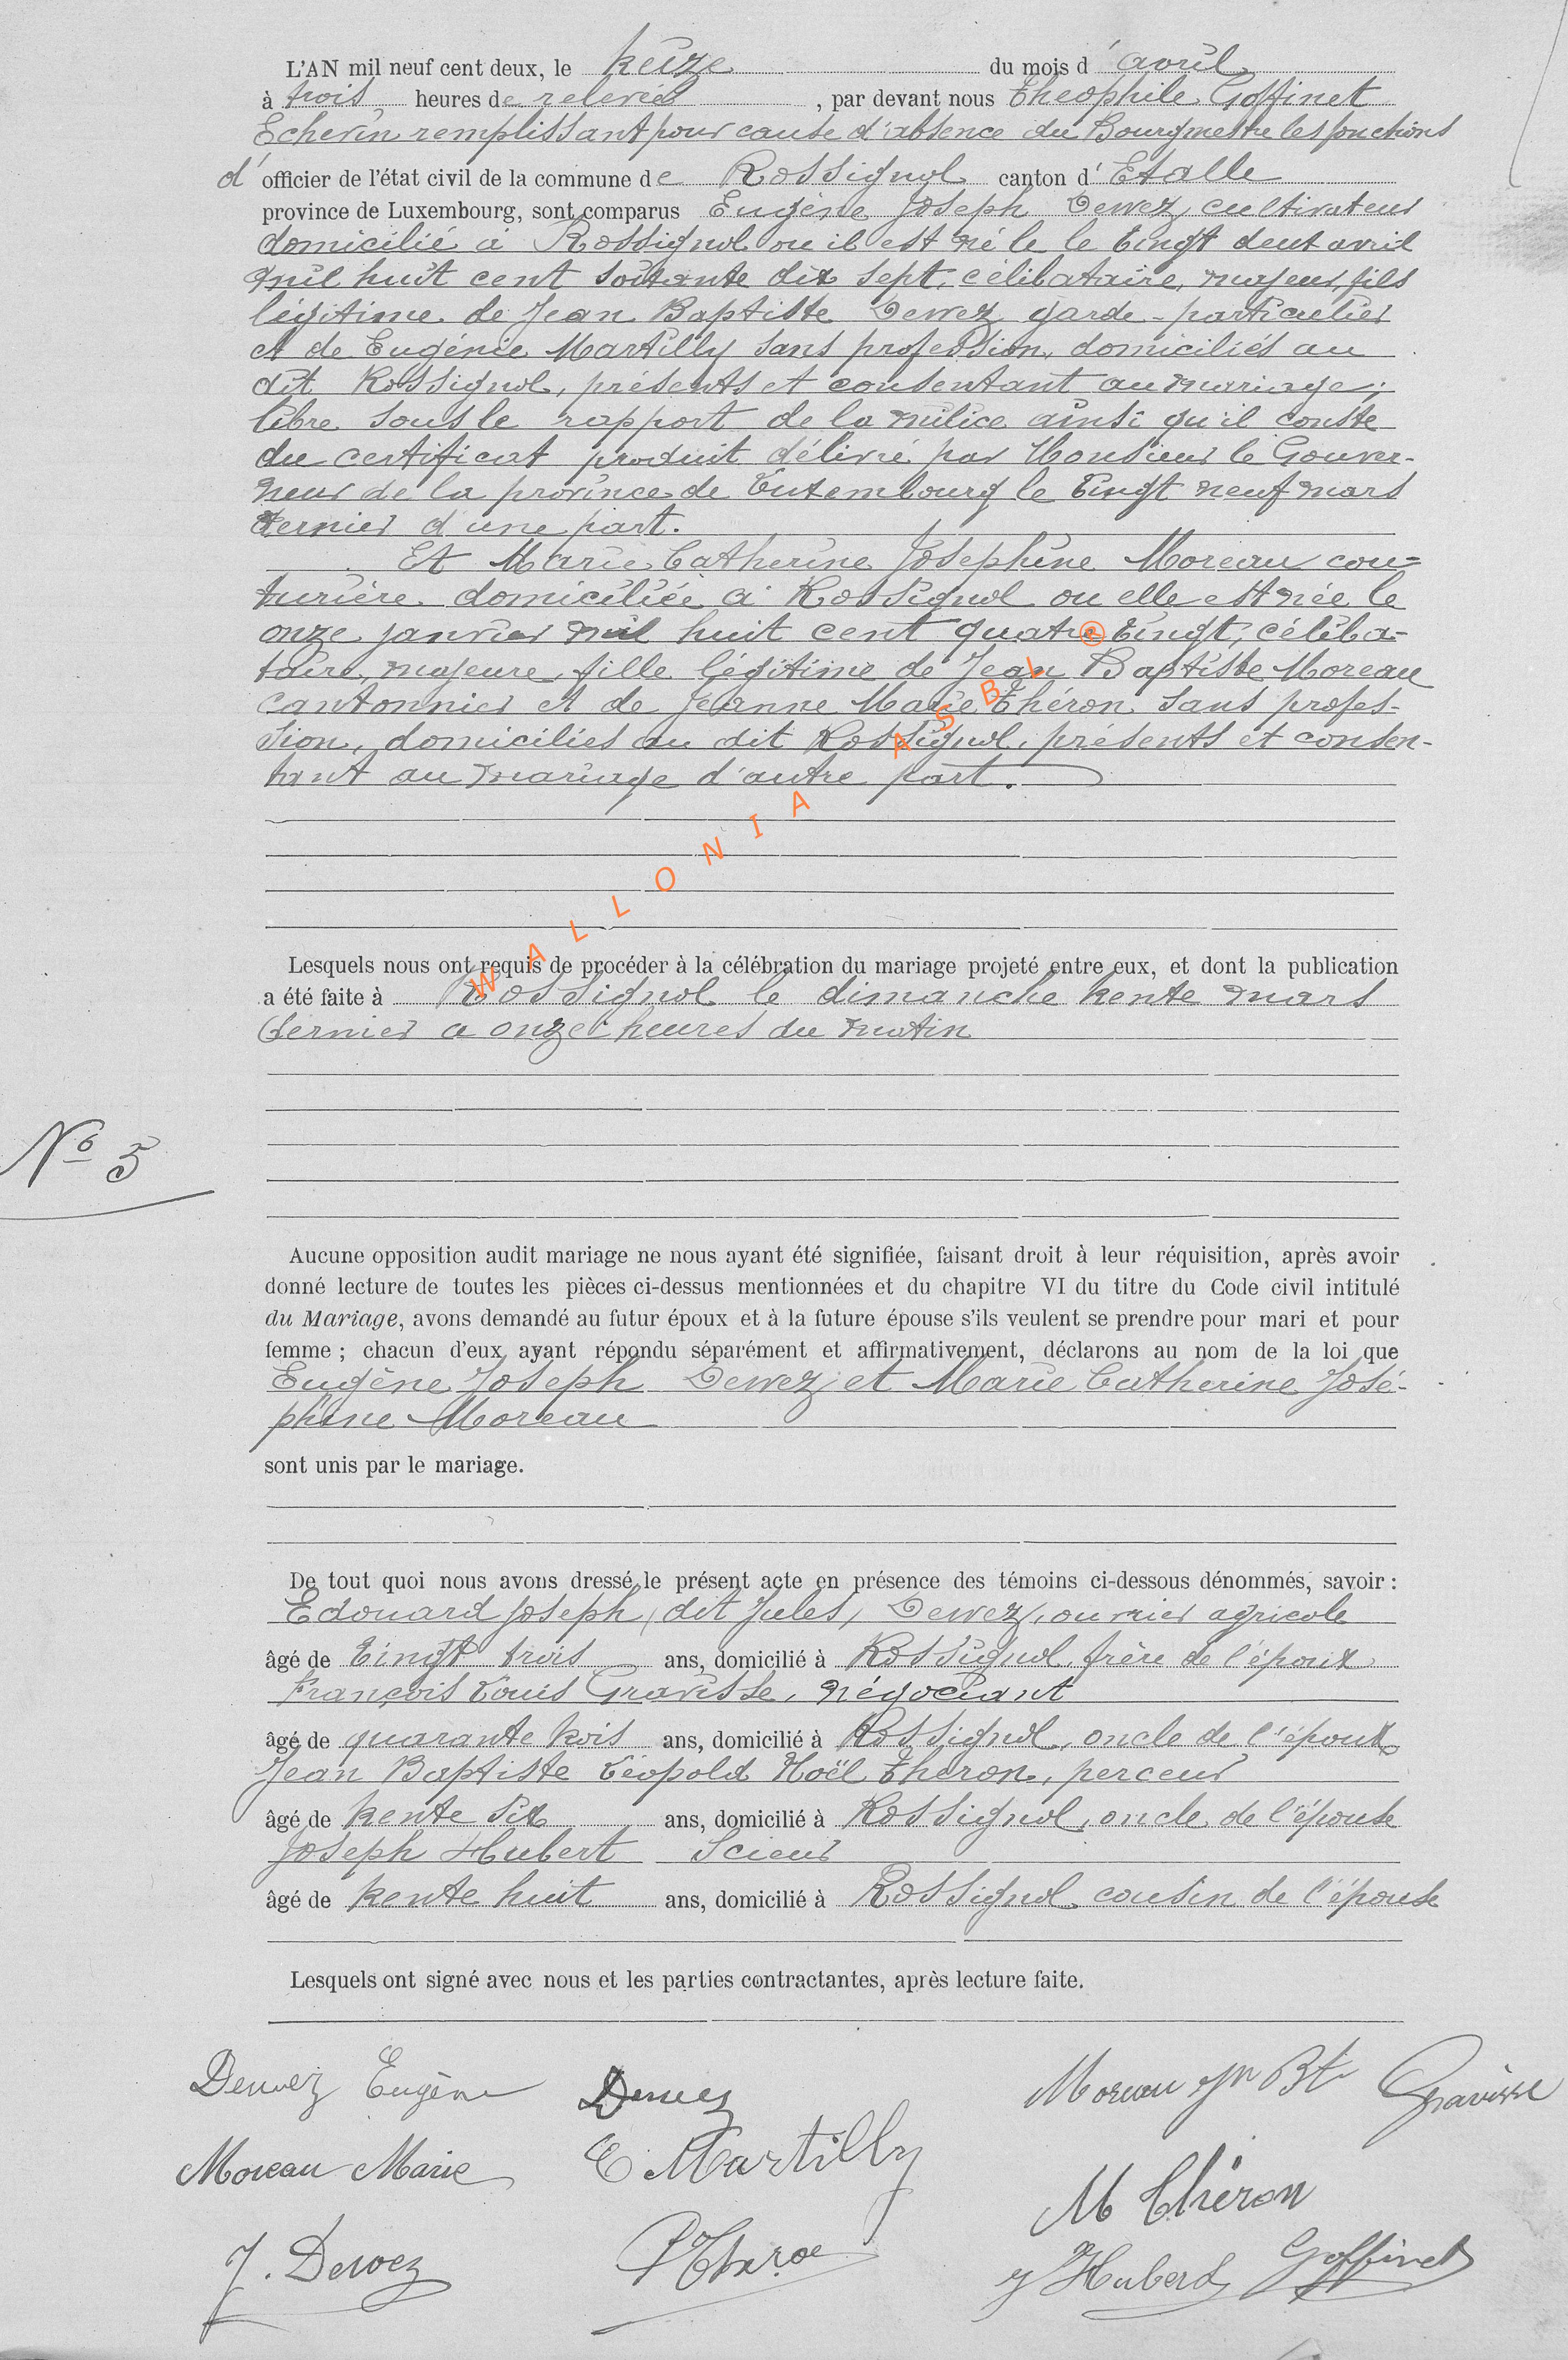 L'AN mil neuf cent deux, le treize du mois d'avril
à trois heures de relevée, par devant nous Théophile Goffinet
Echevin remplissant pour cause d'absence du Bourgmestre les fonctions
d'officier de l'état civil de la commune de Rossignol canton d'Etalle
province de Luxembourg, sont comparus Eugène Joseph Dewez, cultivateur
domicilié à Rossignol où il est né le le vingt deux avril
mil huit cent soixante dix sept, célibataire, majeur, fils
légitime de Jean Baptiste Dewez garde-particulier
et de Eugénie Martilly sans profession, domiciliés au
dit Rossignol, présents et consentant au mariage;
libre sous le rapport de la milice ainsi qu'il conste
du certificat produit délivré par Monsieur le Gouver-
neur de la province de Luxembourg le vingt neuf mars
dernier d'une part.
Et Marie Catherine Joséphine Moreau cou-
turière domiciliée à Rossignol où elle est née le
onze janvier mil huit cent quatre vingt, céliba-
taire, majeure, fille légitime de Jean Baptiste Moreau
cantonnier et de Jeanne Marie Théron sans profes-
sion, domiciliés au dit Rossignol, présents et consen-
tant au mariage d'autre part.
WALLONIA ASBL ®
Lesquels nous ont requis de procéder à la célébration du mariage projeté entre eux, et dont la publication
a été faite à Rossignol le dimanche trente mars
dernier à onze heures du matin
No 5
Aucune opposition audit mariage ne nous ayant été signifiée, faisant droit à leur réquisition, après avoir
donné lecture de toutes les pièces ci-dessus mentionnées et du chapitre VI du titre du Code civil intitulé
du Mariage, avons demandé au futur époux et à la future épouse s'ils veulent se prendre pour mari et pour
femme ; chacun d'eux ayant répondu séparément et affirmativement, déclarons au nom de la loi que
Eugène Joseph Dewez et Marie Catherine José-
phine Moreau
sont unis par le mariage.
De tout quoi nous avons dressé le présent acte en présence des témoins ci-dessous dénommés, savoir :
Edouard Joseph, dit Jules, Dewez, ouvrier agricole
âgé de vingt trois ans, domicilié à Rossignol, frère de l'époux
François Louis Gravisse, négociant
âgé de quarante trois ans, domicilié à Rossignol, oncle de l'époux
Jean Baptiste Léopold Noël Théron, perceur
âgé de trente six ans, domicilié à Rossignol, oncle de l'épouse
Joseph Hubert Scieur
âgé de trente huit ans, domicilié à Rossignol cousin de l'épouse
Lesquels ont signé avec nous et les parties contractantes, après lecture faite.
Dewez Eugène Dewez Moreau Jn Bte Gravisse
Moreau Marie E. Martilly M Théron
J. Dewez J Hubert Goffinet